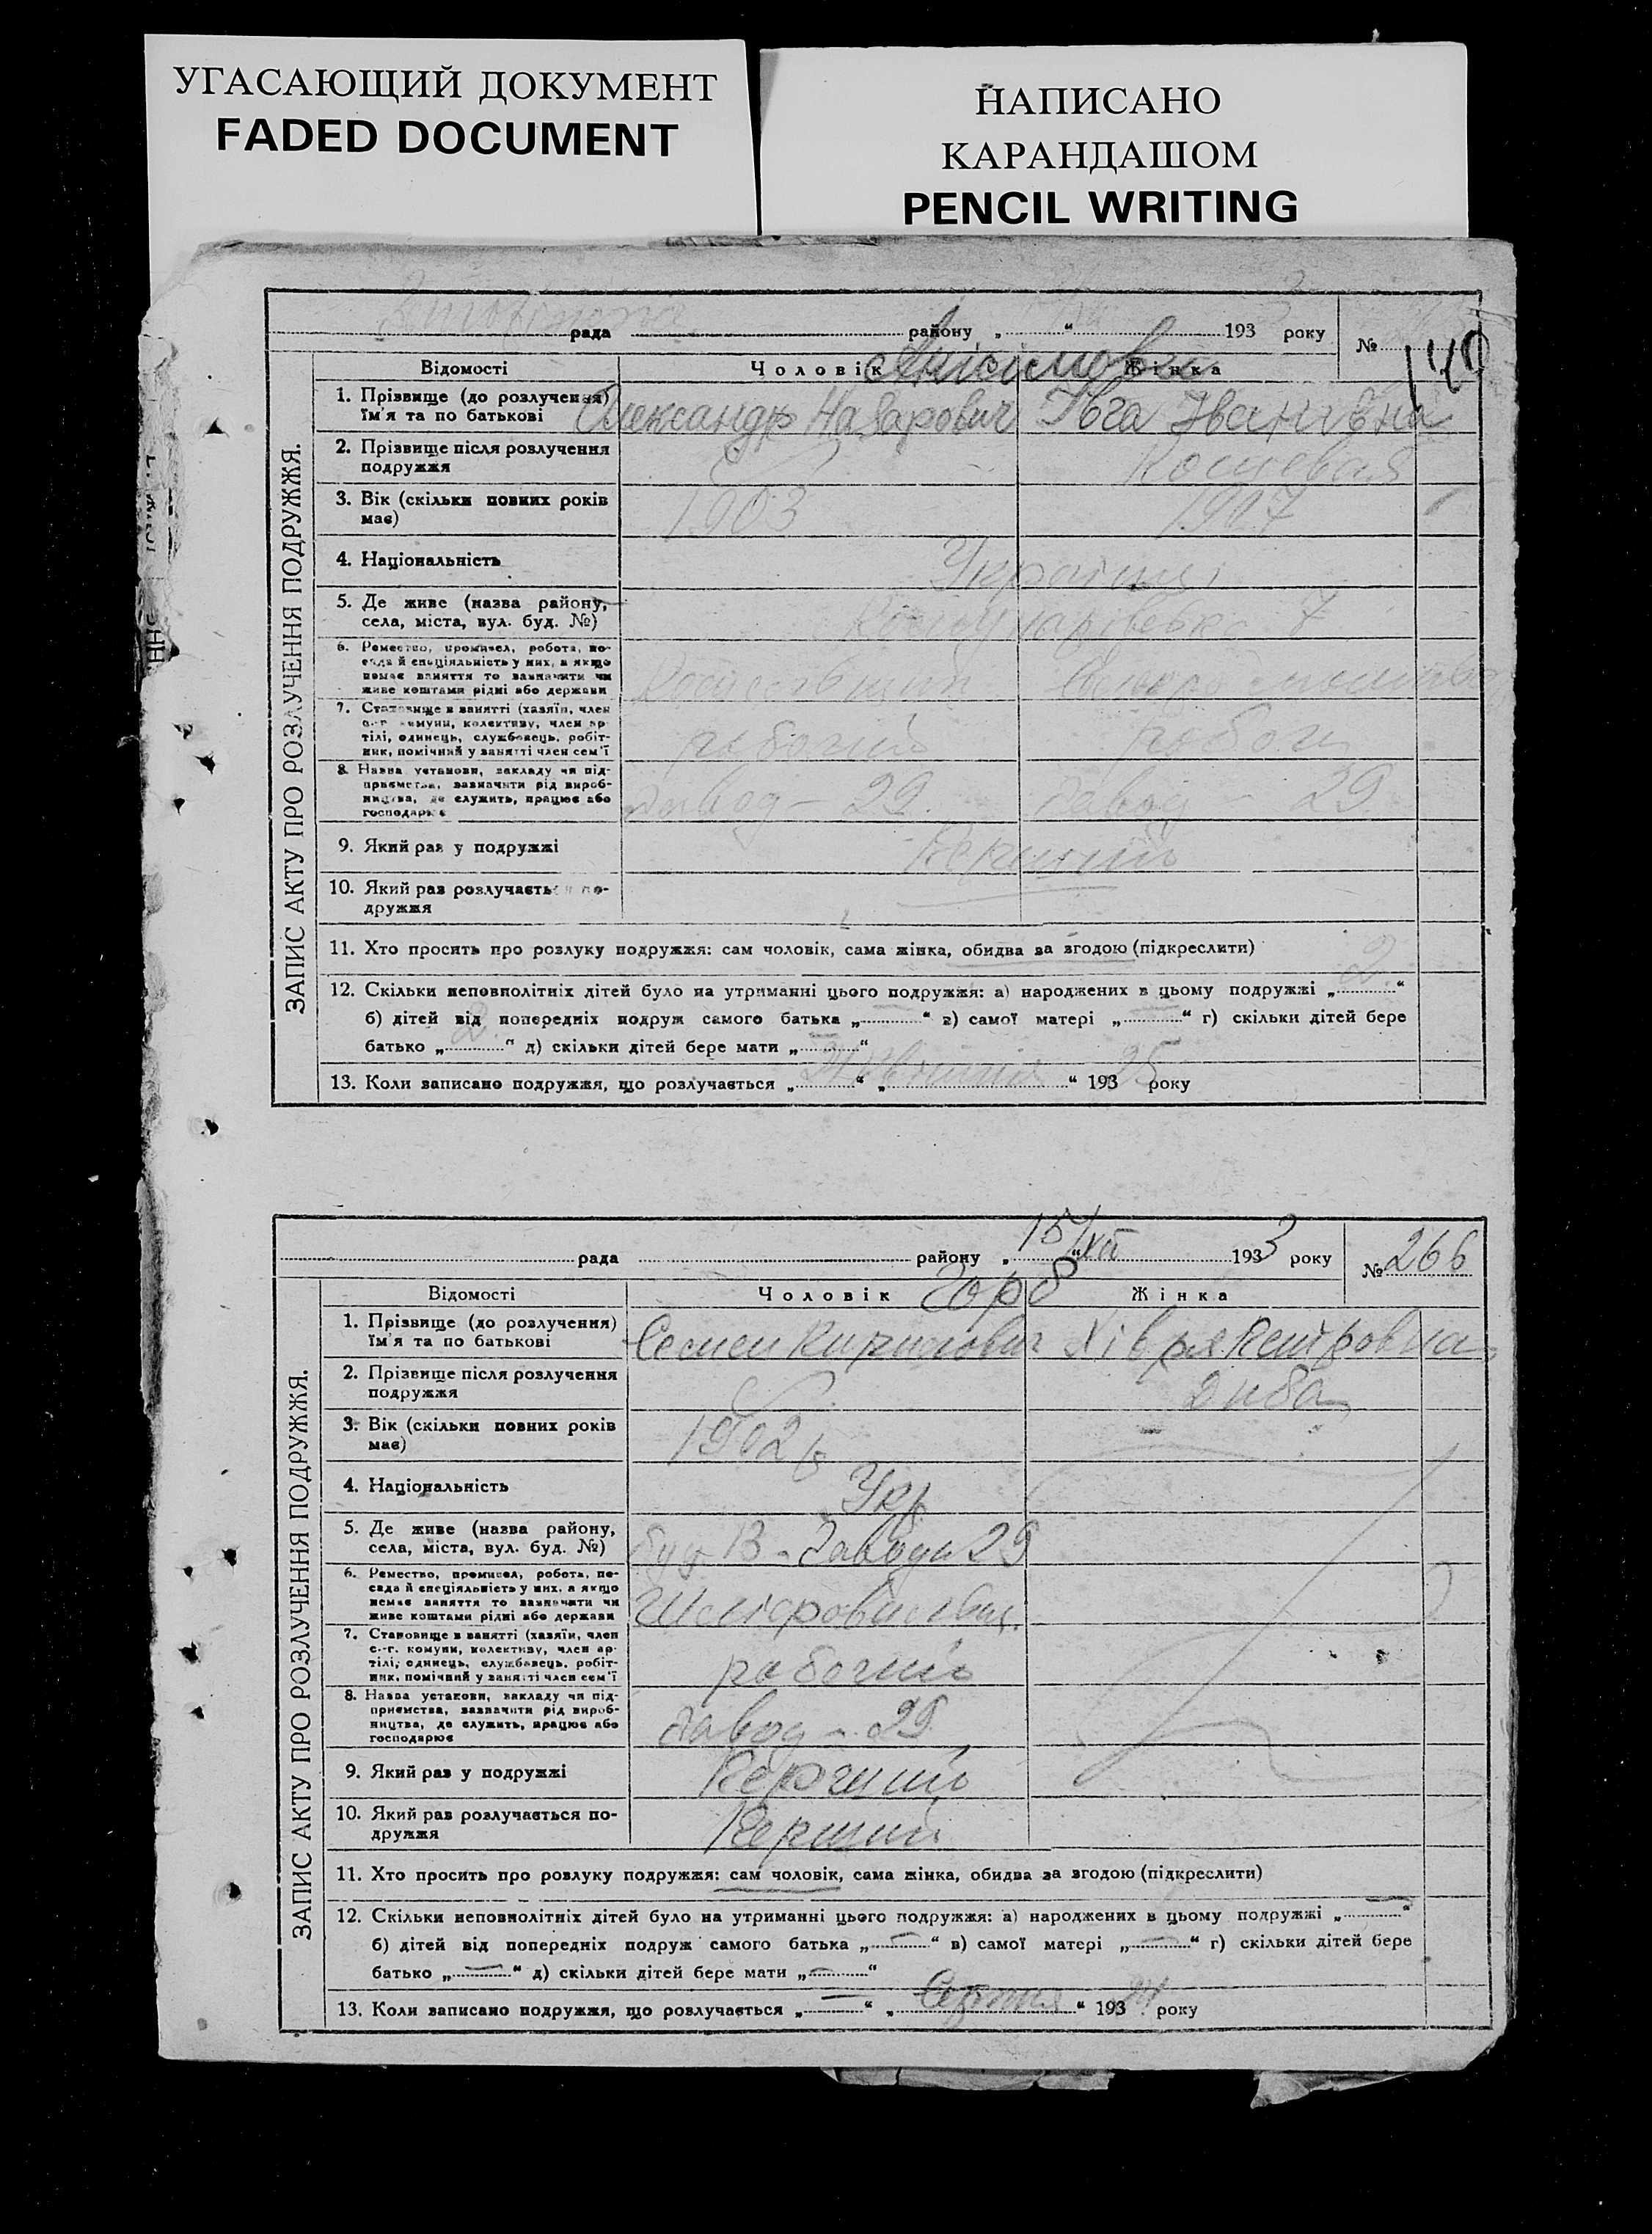 УГАСАЮЩИЙ ДОКУМЕНТ
FADED DOCUMENT
НАПИСАНО
КАРАНДАШОМ
PENCIL WRITING
ЗАПИС АКТУ ПРО РОЗЛУЧЕННЯ ПОДРУЖЖЯ.
рада району „ “ 193 3 року №
140
Відомості Чоловік Жінка
1. Прізвище (до розлучення)
їм'я та по батькові Олександр Назарович Ївга Іванивна
2. Прізвище після розлучення
подружжя Кошевая
3. Вік (скільки повних років
має) 1903 1907
4. Національність Українці
5. Де живе (назва району,
села, міста, вул. буд. №) 7
6. Ремество, промисел, робота, по-
сада й спеціяльність у них, а якщо
немає заняття то зазначити чи
живе коштами рідні або держави
7. Становище в занятті (хазяїн, член
с.-г. комуни, колективу, член ар-
тілі, одинець, службовець, робіт-
ник, помічний у занятті член сем'ї рабочий
8. Назва установи, закладу чи під-
приємства, зазначити рід вироб-
ництва, де служить, працює або
господарює завод – 29. завод – 29
9. Який раз у подружжі Перший
10. Який раз розлучається по-
дружжя
11. Хто просить про розлуку подружжя: сам чоловік, сама жінка, обидва за згодою (підкреслити)
12. Скільки неповнолітніх дітей було на утриманні цього подружжя: а) народжених в цьому подружжі „ 2 “
б) дітей від попередніх подруж самого батька „ “ в) самої матері „ “ г) скільки дітей бере
батько „ 2 “ д) скільки дітей бере мати „ “
13. Коли записано подружжя, що розлучається „ “ „ “ 193 25 року
ЗАПИС АКТУ ПРО РОЗЛУЧЕННЯ ПОДРУЖЖЯ.
рада району „ 15/XII “ 193 3 року № 266
Відомості Чоловік Жінка
Горб
1. Прізвище (до розлучення)
їм'я та по батькові Семен Кирилович Хівря Петровна
2. Прізвище після розлучення
подружжя Диба
3. Вік (скільки повних років
має) 1902 р
4. Національність Укр
5. Де живе (назва району,
села, міста, вул. буд. №) буд 13 – Завода 29
6. Ремество, промисел, робота, по-
сада й спеціяльність у них, а якщо
немає заняття то зазначити чи
живе коштами рідні або держави
7. Становище в занятті (хазяїн, член
с.-г. комуни, колективу, член ар-
тілі, одинець, службовець, робіт-
ник, помічний у занятті член сем'ї рабочий
8. Назва установи, закладу чи під-
приємства, зазначити рід вироб-
ництва, де служить, працює або
господарює завод – 29
9. Який раз у подружжі Перший
10. Який раз розлучається по-
дружжя Перший
11. Хто просить про розлуку подружжя: сам чоловік, сама жінка, обидва за згодою (підкреслити)
12. Скільки неповнолітніх дітей було на утриманні цього подружжя: а) народжених в цьому подружжі „ — “
б) дітей від попередніх подруж самого батька „ — “ в) самої матері „ — “ г) скільки дітей бере
батько „ — “ д) скільки дітей бере мати „ — “
13. Коли записано подружжя, що розлучається „ — “ „ Серпня “ 193 року